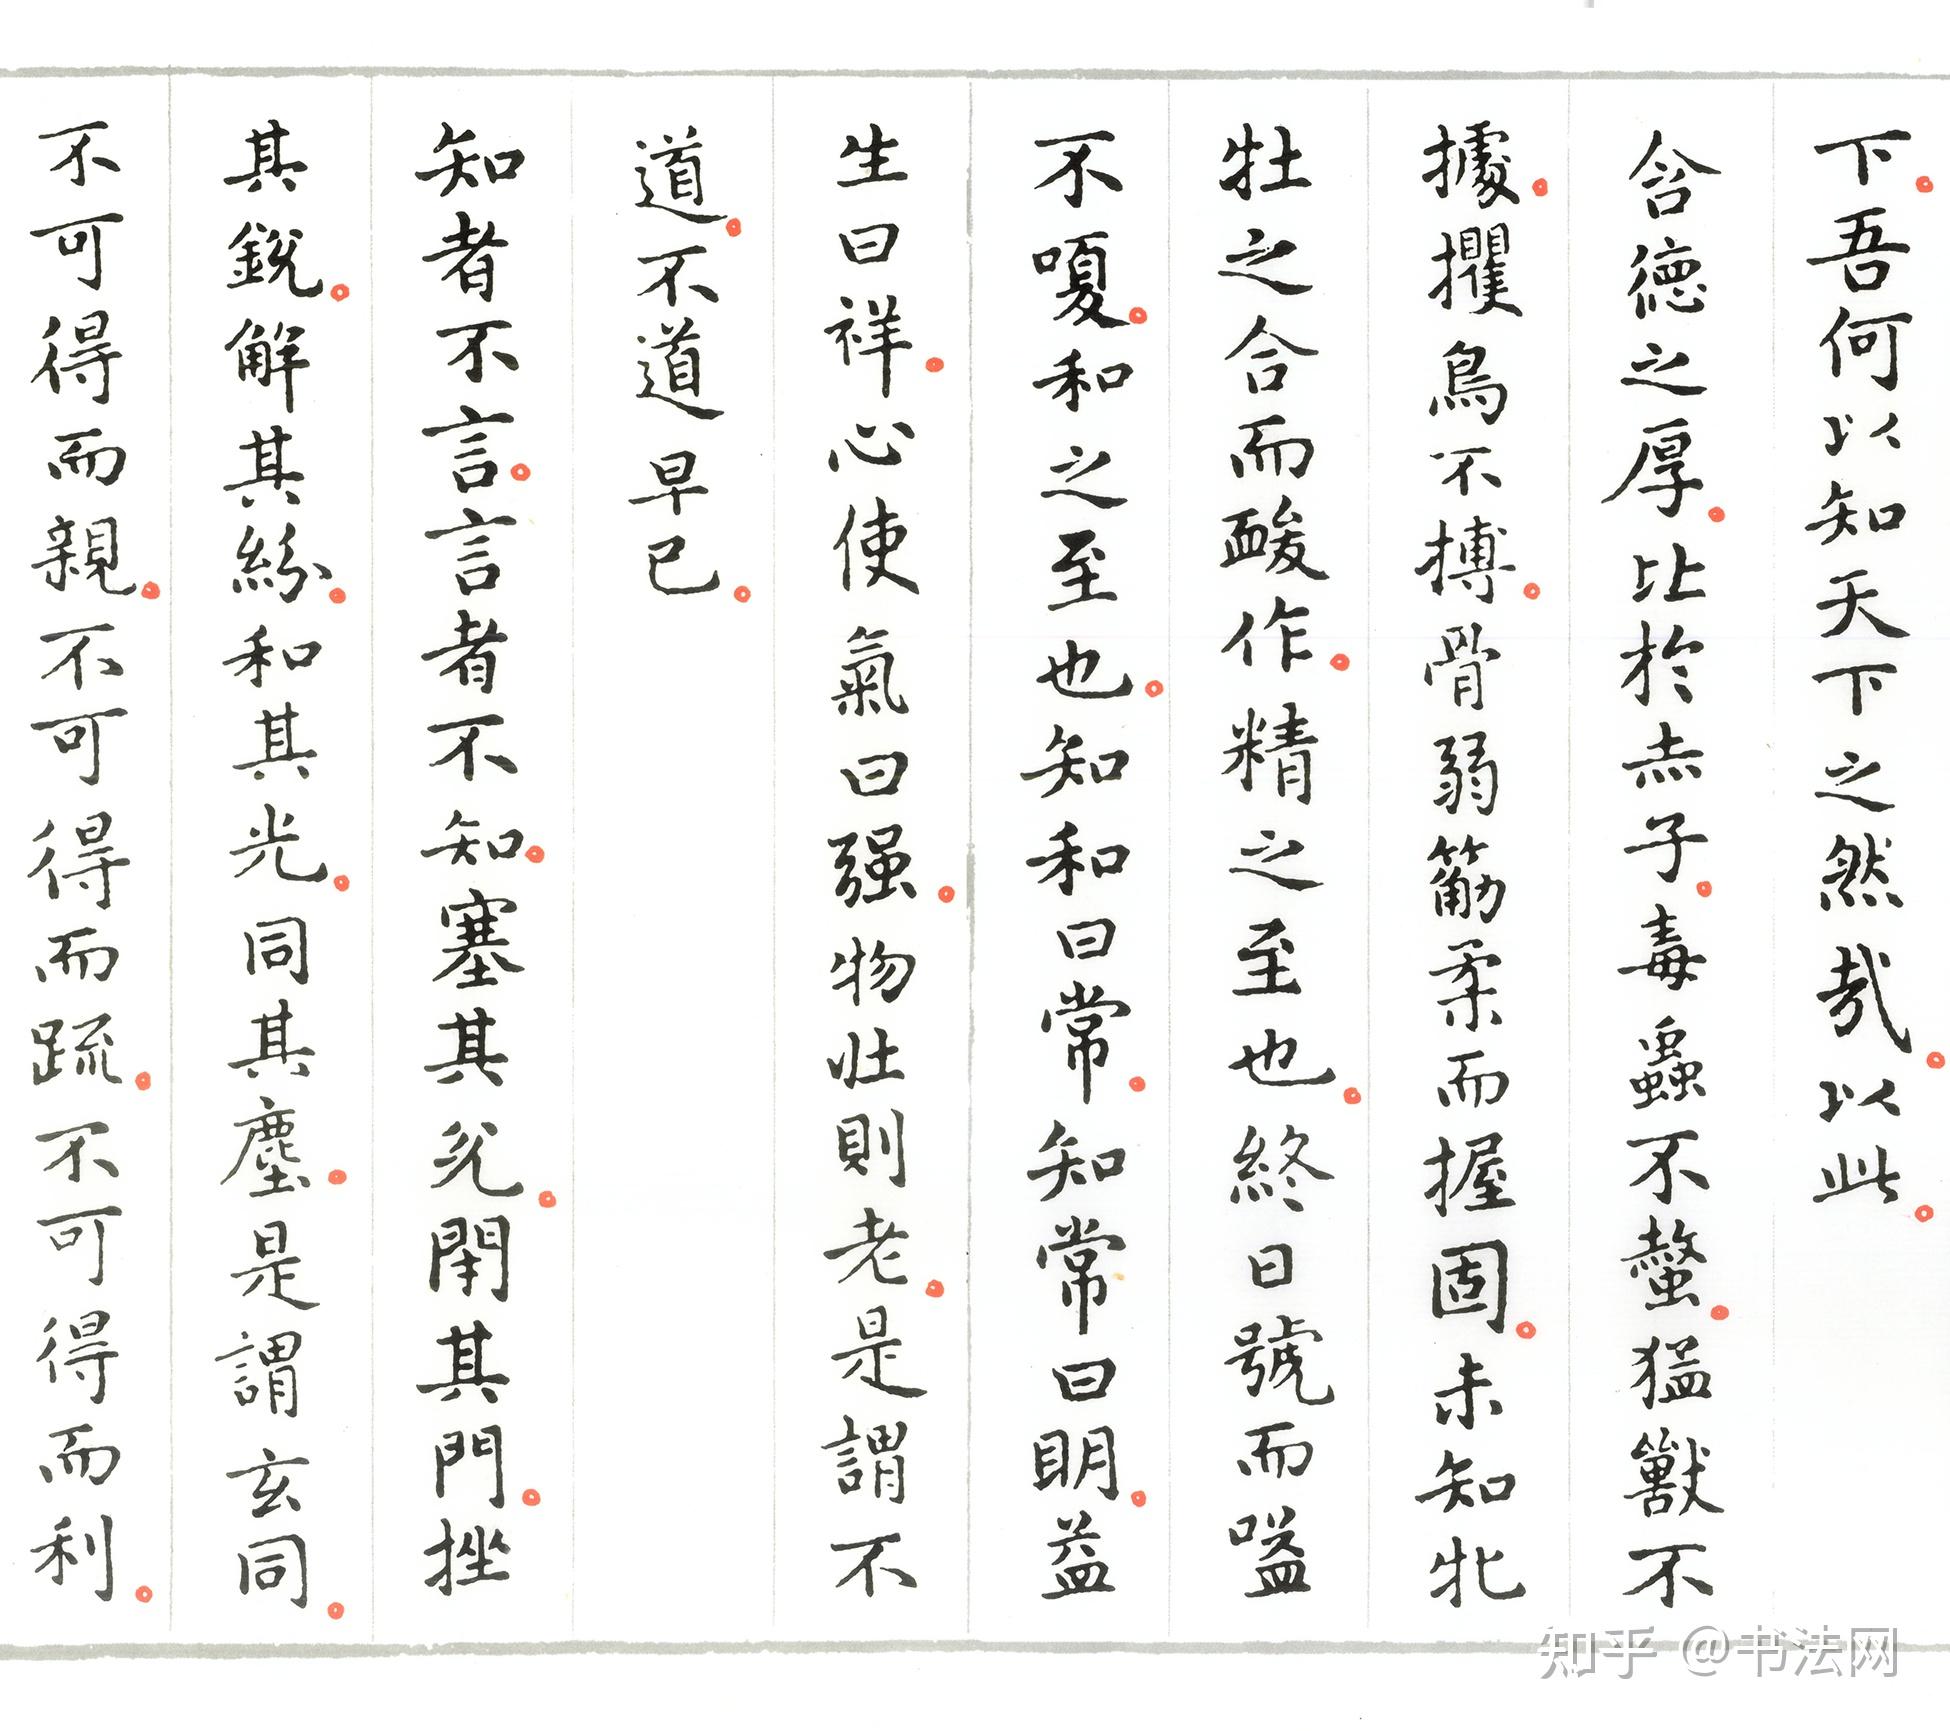 下。吾何以知天下之然哉。以此。
含德之厚。比於赤子。毒蟲不螫。猛獸不
據。攫鳥不搏。骨弱筋柔而握固。未知牝
牡之合而酸作。精之至也。終日號而嗌
不嗄。和之至也。知和曰常。知常曰明。益
生曰祥。心使氣曰强。物壯則老。是謂不
道。不道早已。
知者不言。言者不知。塞其兊。閈其門。挫
其銳。解其紛。和其光。同其塵。是謂玄同。
不可得而親。不可得而疏。不可得而利。
知乎 @书法网